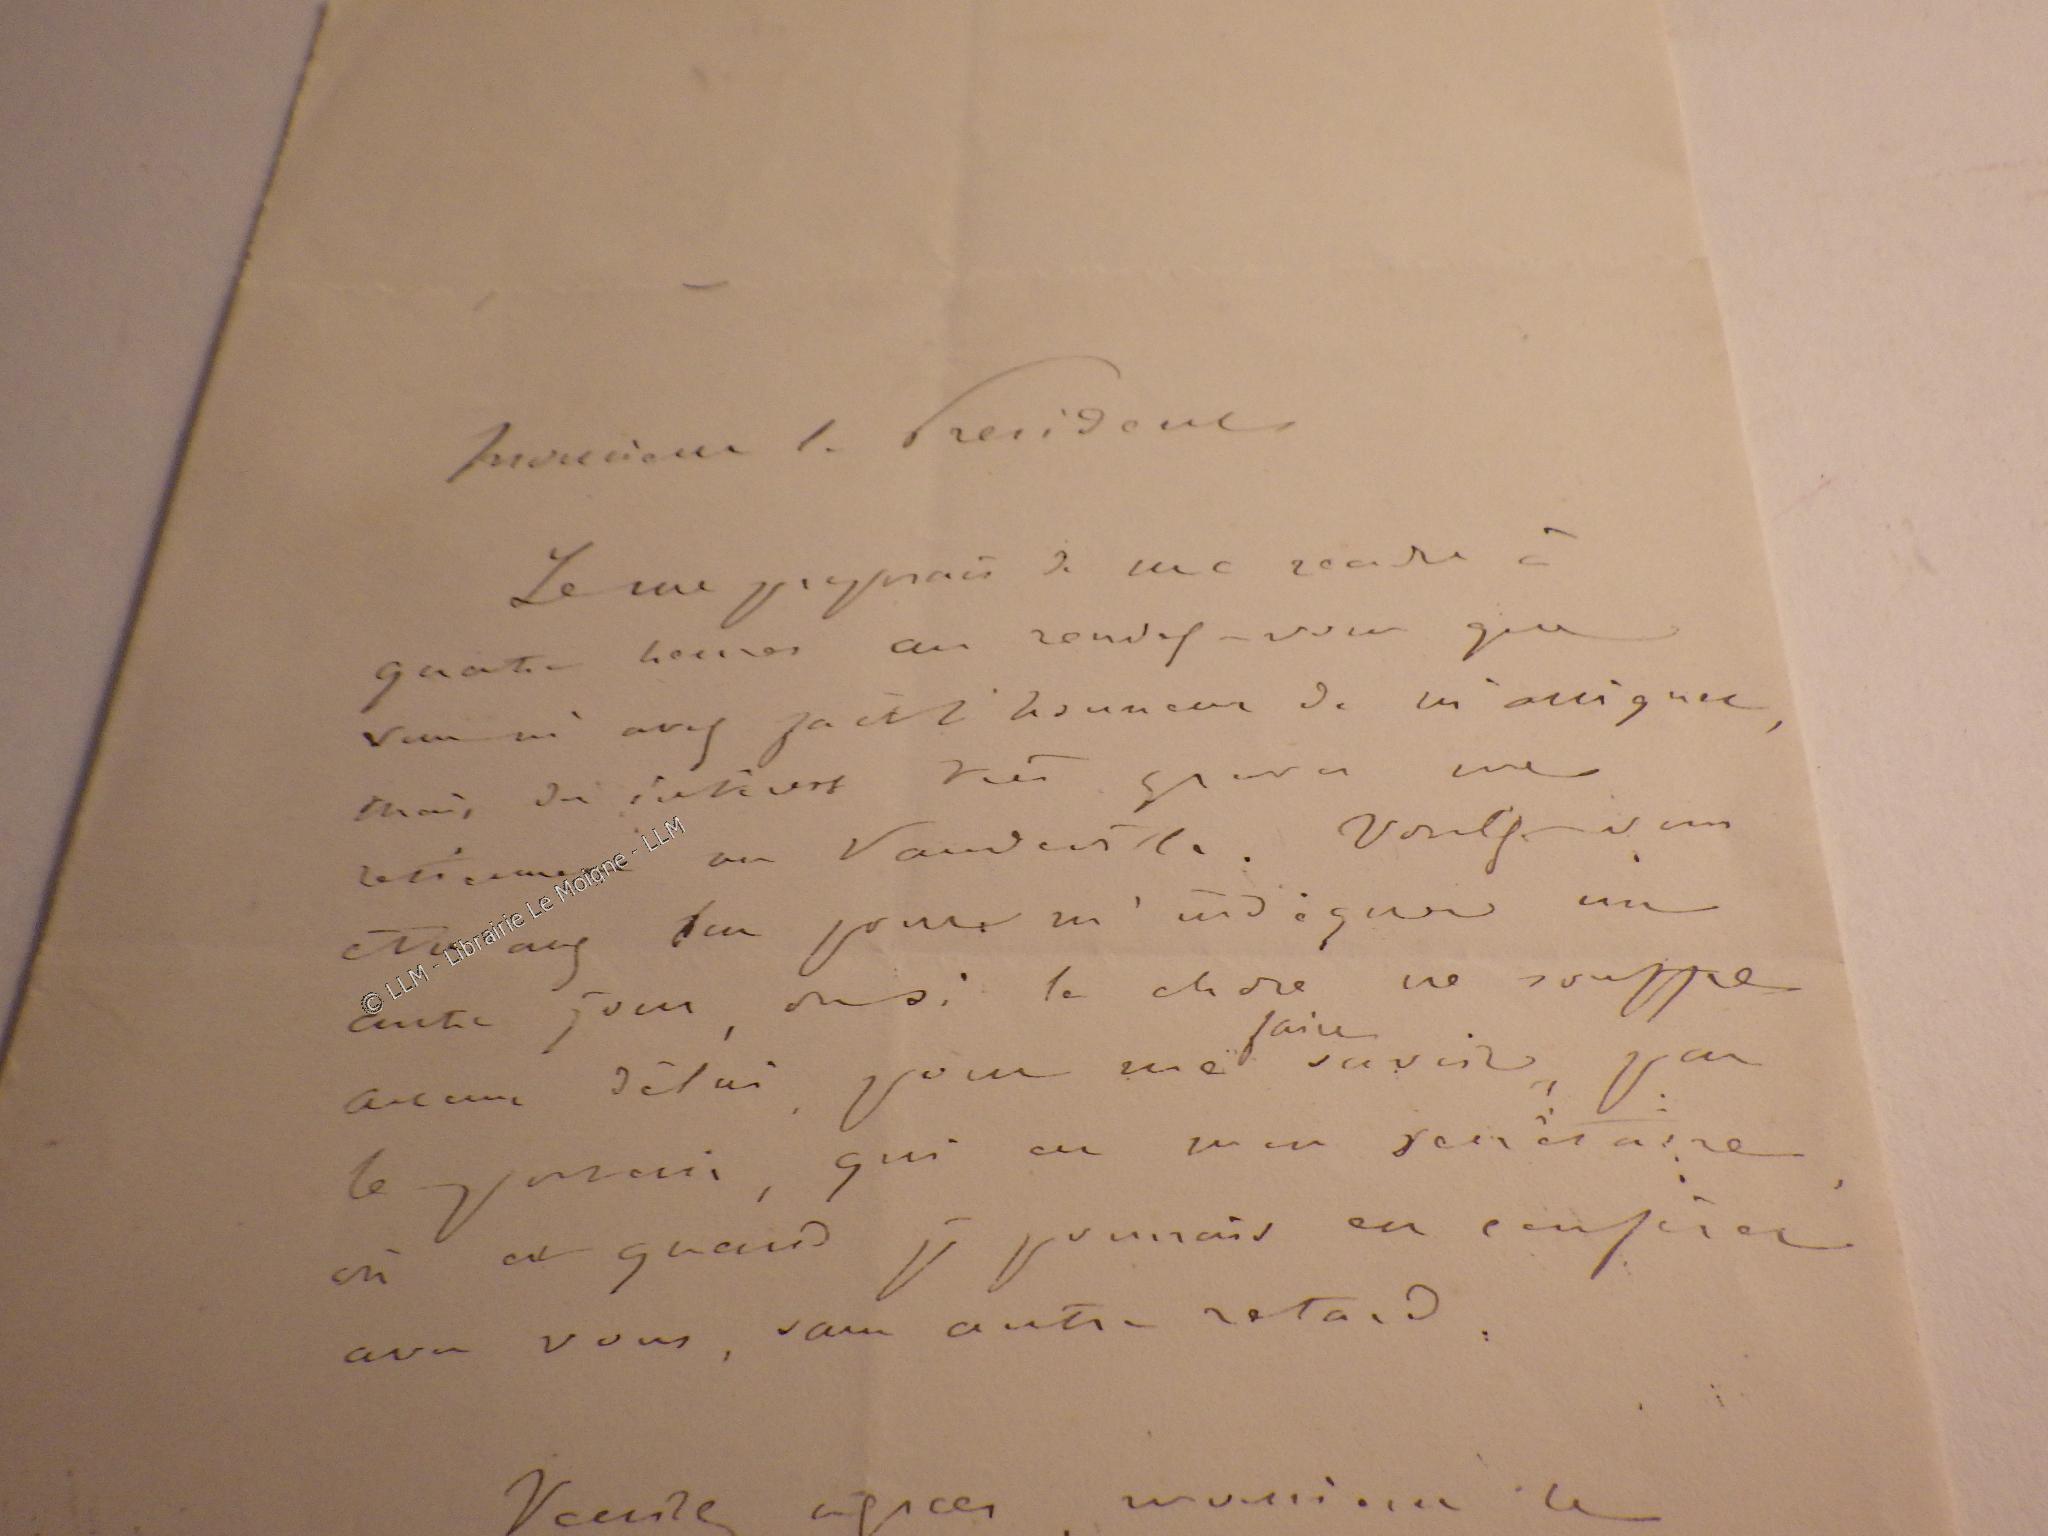 Monsieur le Président
Je me préparais de me rendre à
quatre heures au rendez-vous que
vous m'avez fait l'honneur de m'assigner,
mais des intérêts très graves me
retiennent au Vaudeville. Voulez-vous
être assez bon pour m'indiquer un
autre jour, ou si la chose ne souffre
aucun délai, pour me faire savoir, par
le porteur, qui est mon secrétaire,
où et quand je pourrais en conférer
avec vous, sans autre retard.
Veuillez agréer, monsieur le
© LLM - Librairie Le Moigne - LLM